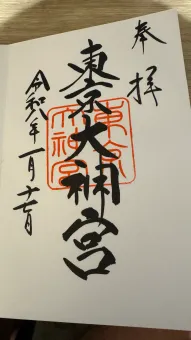 奉拝
東京大神宮
東京大神宮
令和 年一月十七日